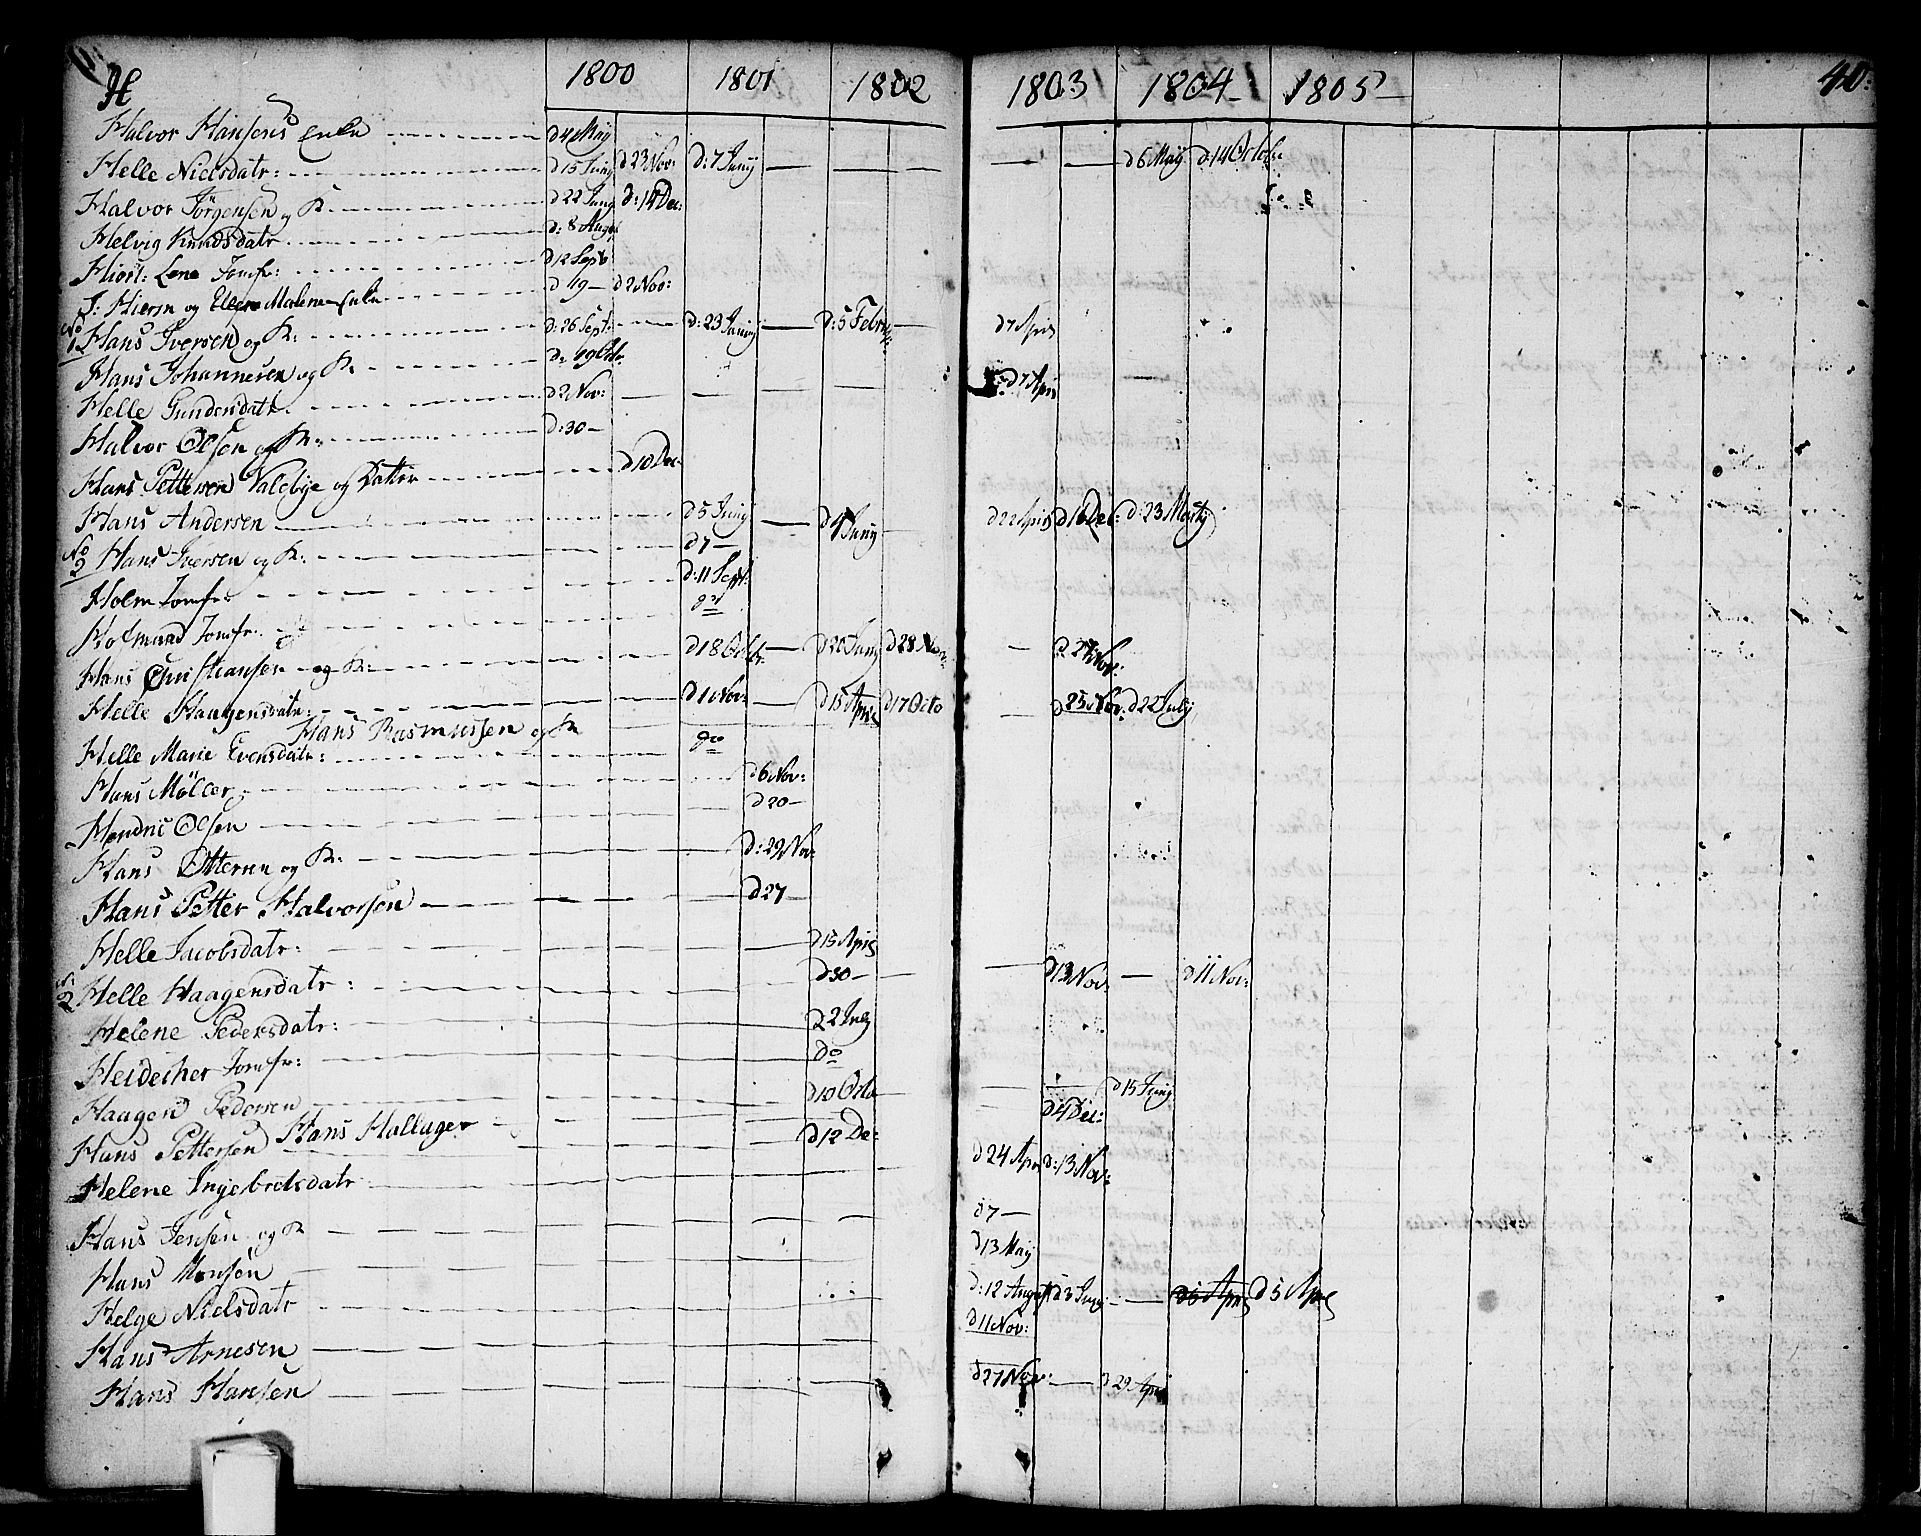 H 1800 1801 1802 1803 1804 1805 40.
Halvor Hansens Enke d 4 May
Helle Nielsdatr: d 15 Juny d 23 Nov: d: 7 Junij d 6 Maij d: 14 Octobr
Halvor Jörgensen og K. d 22 Juny d: 14 Dec:
Helvig Knudsdatr d: 8 August
Hiort: Lene Jomfr: d 12 Septb
J: Hierm og Malene Enke d 19 — d 2 Nov:
No 1 Hans Iversen og K. d: 26 Sept: d: 23 Junij d: 5 Febr d 7 Apr
Hans Johannesen og K d: 19 Octr d 7 Apr
Helle Gundersdatr. d 2 Nov:
Halvor Olsen og K: d: 30 —
Hans Pettersen Valebye og Datter d 10 Dec
Hans Andersen d 5 Junij d 4 Junij d 22 Apr d 16 Dec: d: 23 Martij
No 2 Hans Iversen og K: d 7 —
Holm Jomfr d: 11 Sept:
Jomfr. do
Hans Christiansen og K: d 18 Octbr d 20 Junij d 28 Nov d 27 Nov:
Helle Haagensdatr: d 1 Nov: d 15 Apr d 17 Octo d 25 Nov: d 22 July
Hans Rasmussen og K
Helle Marie Evensdatr: do
Hans Möller d 6 Nov:
Hendric Olsen d 20 —
Hans Ottersen og K: d: 29 Nov:
Hans Petter Halvorsen d 27 —
Helle Jacobsdatr: d 15 Apr
N: 2 Helle Haagensdatr: d 30 — d 13 Nov d 11 Nov:
Helene Pedersdatr: d 2 July
Heidecher Jomfr: do
Haagen Pedersen d 10 Octo d 15 Junij
Hans Hallager d 4 Dec:
Hans Pettersen d 12 De:
Helene Ingebretsdatr d 24 Apr d: 13 Nov:
Hans Jensen og K d 7 —
Hans Monsen d 13 Maij
Helge Nielsdatr d: 12 August d 3 Junij d 5 Apr d 5 Apr
Hans Arnesen d 11 Nov:
Hans Hansen d 27 Nov: d 29 Apr